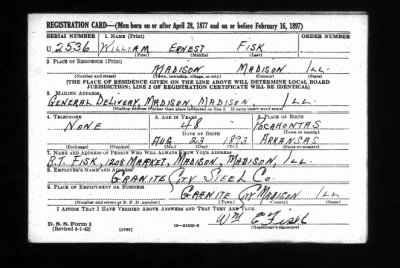 REGISTRATION CARD—(Men born on or after April 28, 1877 and on or before February 16, 1897)
SERIAL NUMBER 1. NAME (Print) ORDER NUMBER
U 2536 WILLIAM ERNEST FISK
(First) (Middle) (Last)
2. PLACE OF RESIDENCE (Print)
MADISON MADISON ILL
(Number and street) (Town, township, village, or city) (County) (State)
[THE PLACE OF RESIDENCE GIVEN ON THE LINE ABOVE WILL DETERMINE LOCAL BOARD
JURISDICTION; LINE 2 OF REGISTRATION CERTIFICATE WILL BE IDENTICAL]
3. MAILING ADDRESS
GENERAL DELIVERY, MADISON, MADISON, ILL.
[Mailing address if other than place indicated on line 2. If same insert word same]
4. TELEPHONE 5. AGE IN YEARS 6. PLACE OF BIRTH
NONE 48 POCAHONTAS
DATE OF BIRTH (Town or county)
AUG 23 1893 ARKANSAS
(Exchange) (Number) (Mo.) (Day) (Yr.) (State or country)
7. NAME AND ADDRESS OF PERSON WHO WILL ALWAYS KNOW YOUR ADDRESS
B.T. FISK, 1208 MARKET, MADISON, MADISON, ILL.
8. EMPLOYER'S NAME AND ADDRESS
GRANITE CITY STEEL CO.
9. PLACE OF EMPLOYMENT OR BUSINESS
GRANITE CITY MADISON ILL
(Number and street or R. F. D. number) (Town) (County) (State)
I AFFIRM THAT I HAVE VERIFIED ABOVE ANSWERS AND THAT THEY ARE TRUE.
D. S. S. Form 1 Wm E Fisk
(Revised 4-1-42) (over) (Registrant's signature)